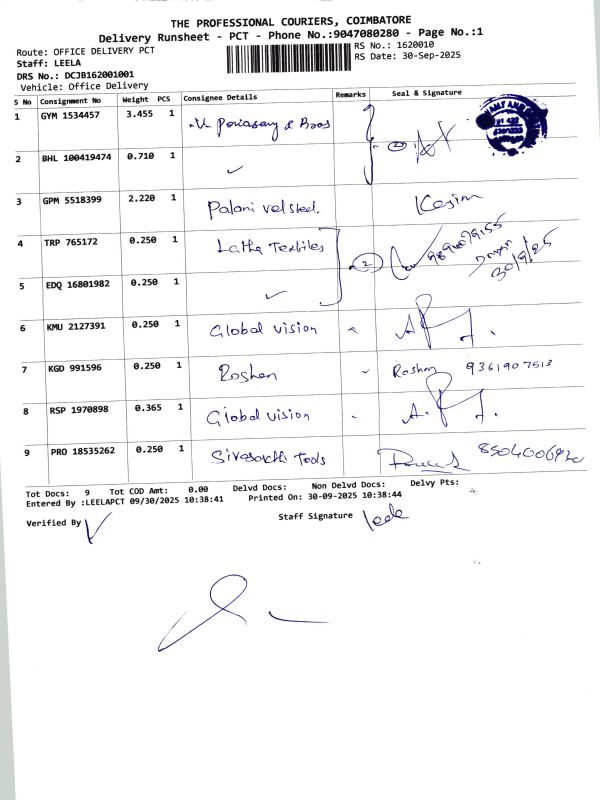 THE PROFESSIONAL COURIERS, COIMBATORE
Delivery Runsheet - PCT - Phone No.:9047080280 - Page No.:1
Route: OFFICE DELIVERY PCT RS No.: 1620010
Staff: LEELA RS Date: 30-Sep-2025
DRS No.: DCJB162001001
Vehicle: Office Delivery
S No Consignment No Weight PCS Consignee Details Remarks Seal & Signature
1 GYM 1534457 3.455 1 Periasamy &
2 BHL 100419474 0.710 1 ✓ 2
3 GPM 5518399 2.220 1 Palani vel steel. Kasim
4 TRP 765172 0.250 1 Latha Textiles 2
30/9/25
5 EDQ 16801982 0.250 1 ✓
6 KMU 2127391 0.250 1 Global vision
7 KGD 991596 0.250 1 Roshan Roshan 9361907513
8 RSP 1970898 0.365 1 Global vision
9 PRO 18535262 0.250 1 Tools
Tot Docs: 9 Tot COD Amt: 0.00 Delvd Docs: Non Delvd Docs: Delvy Pts:
Entered By :LEELAPCT 09/30/2025 10:38:41 Printed On: 30-09-2025 10:38:44
Verified By Staff Signature leela